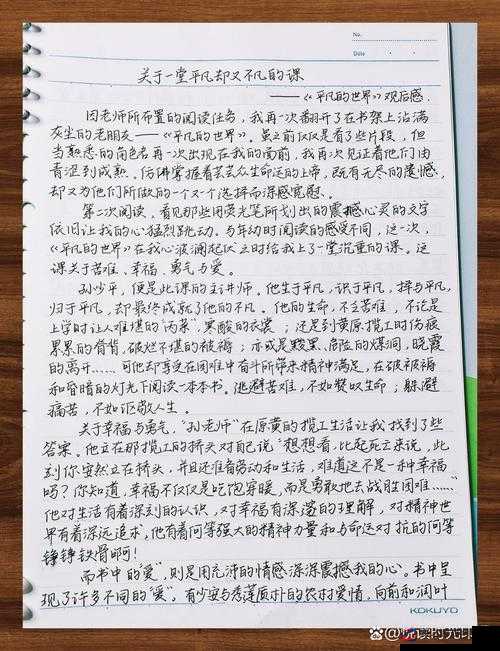 No.
Date
关于一堂平凡却又不凡的课
——《平凡的世界》观后感.
因老师所布置的阅读任务，我再一次翻开了在书架上沾满
灰尘的老朋友——《平凡的世界》。虽之前仅仅是看了些片段，但
当熟悉的角色再一次出现在我的面前，我再次见证着他们由
青涩到成熟。仿佛掌握着芸芸众生命运的上帝，既有无尽的遗憾，
却又为他们所做的一个又一个选择而深感宽慰。
第二次阅读，看见那些用荧光笔所划出的震撼心灵的文字
依旧让我的心猛烈跳动。与年幼时阅读的感受不同，这一次，
《平凡的世界》在我心波澜起伏之时给我上了一堂沉重的课。这
课关于苦难、幸福、勇气与爱。
孙少平，便是此课的主讲师。他生于平凡，识于平凡，择与平凡，
归于平凡，却最终成就了他的不凡。他的生命，不乏苦难，不论是
上学时让人难堪的“丙菜”，寒酸的衣裳；还是到黄原揽工时伤痕
累累的脊背，破烂不堪的被褥；亦或是黢黑、危险的煤洞，晓霞
的离开……可他却享受在困难中奋斗所带来精神满足，在破被褥
和昏暗的灯光下阅读一本本书。逃避苦难，不如赞叹生命；躲避
痛苦，不如讴歌人生。
关于幸福与勇气，“孙老师”在原黄的揽工生活让我找到了些
答案。他立在那揽工的桥头对自己说“想想看，比起死去来说，此
刻你安然立在桥头，并且还准备劳动和生活，难道这不是一种幸福
吗？你知道，幸福不仅仅是吃饱穿暖，而是勇敢地去战胜困难……”
他对生活有着深刻的认识，对幸福有深邃的理解，对精神世
界有着深远追求，他有着何等强大的精神力量和与命运对抗的何等
铮铮铁骨啊！
而书中的“爱”，则是用充沛的情感深深震撼我的心。书中呈
现了许多不同的“爱”。有少安与秀莲质朴的农村爱情，向前和润叶
KOKUYO